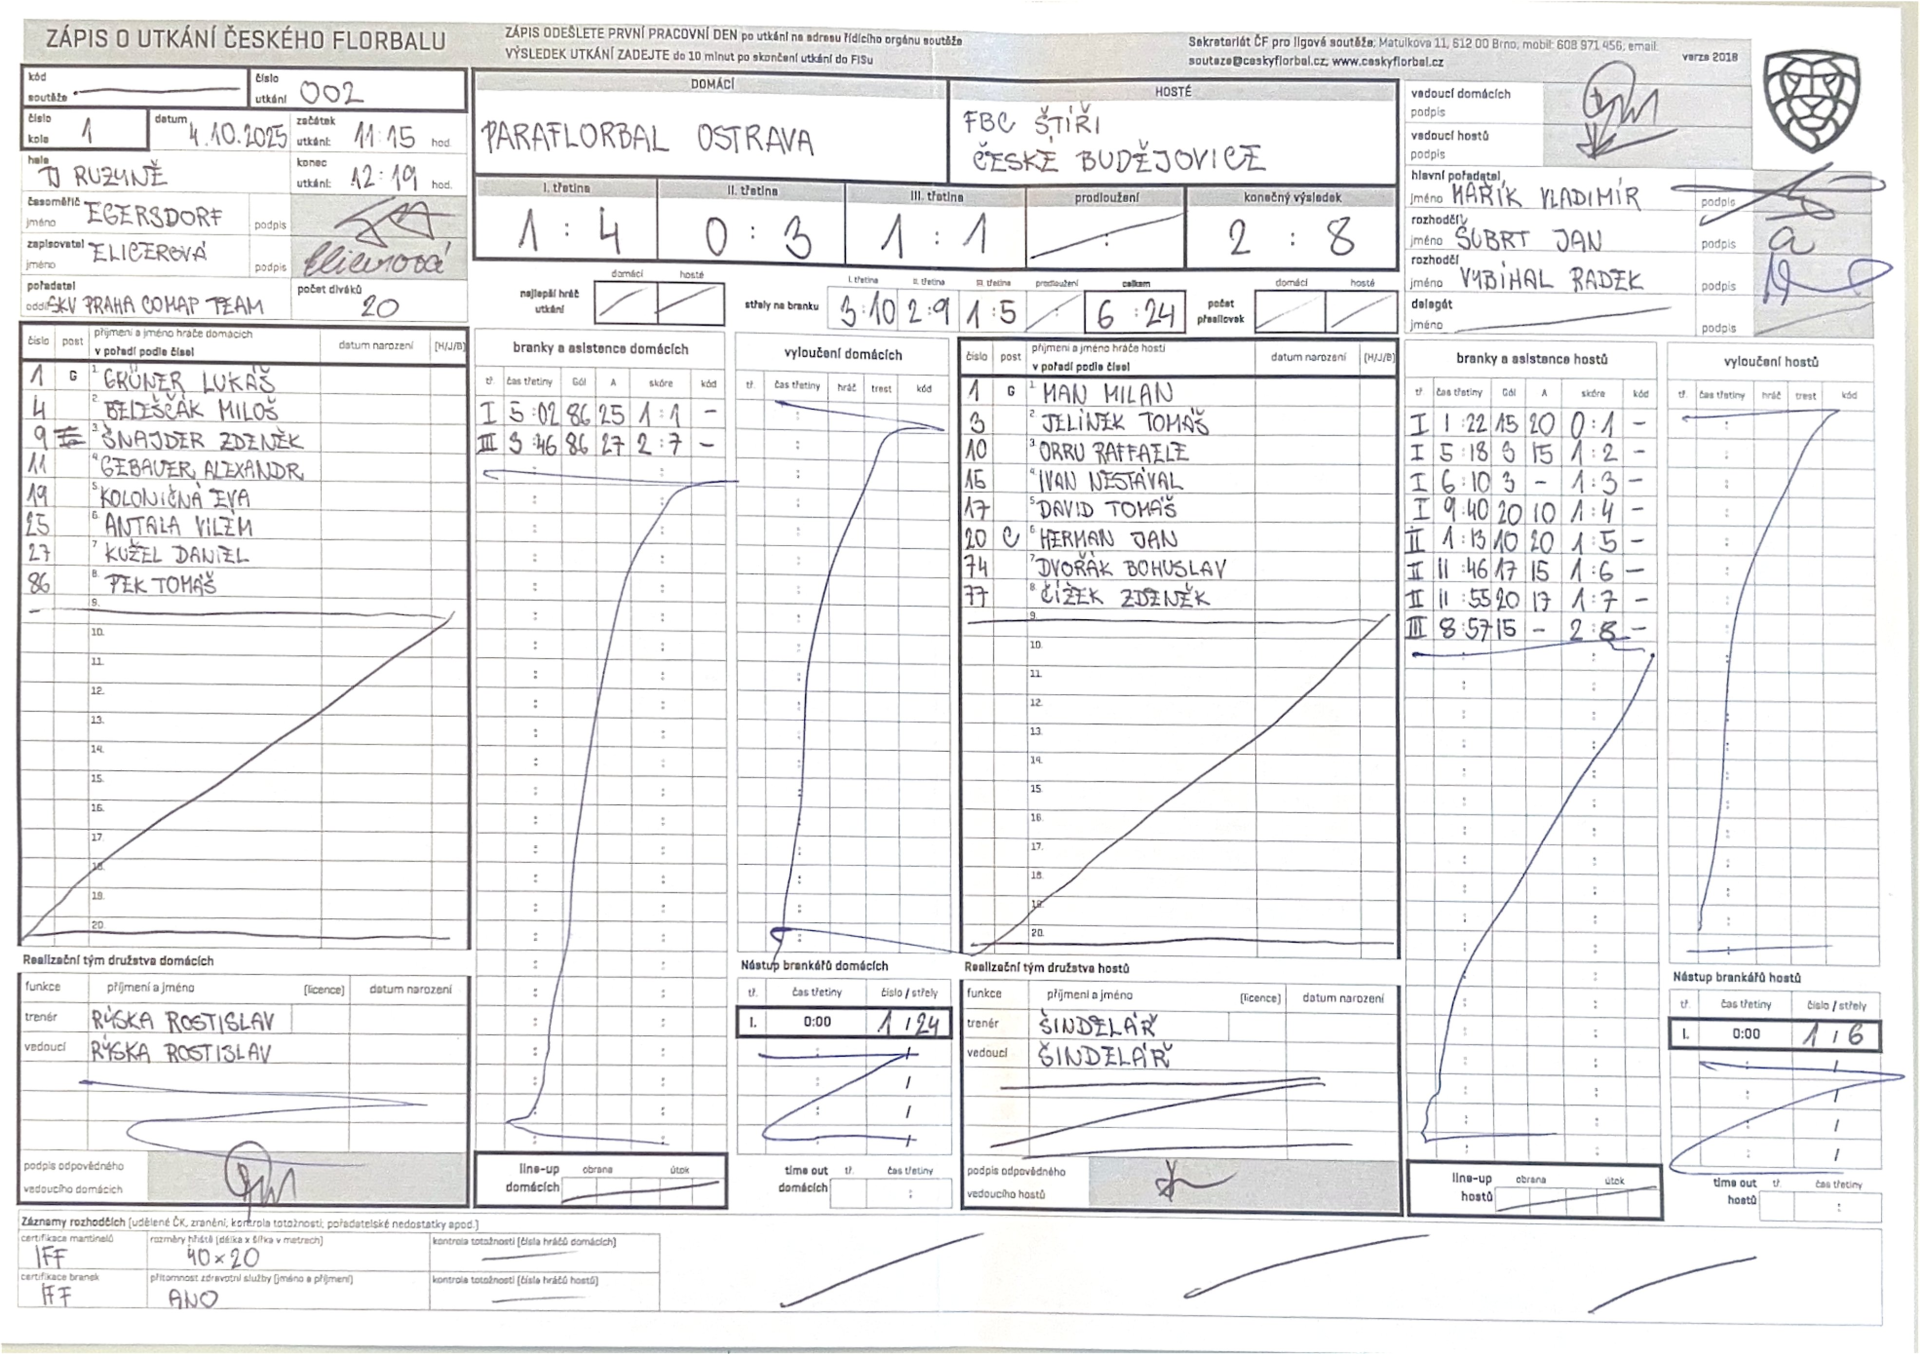 ZÁPIS O UTKÁNÍ ČESKÉHO FLORBALU
ZÁPIS ODEŠLETE PRVNÍ PRACOVNÍ DEN po utkání na adresu řídícího orgánu soutěže
VÝSLEDEK UTKÁNÍ ZADEJTE do 10 minut po skončení utkání do FISu
Sekretariát ČF pro ligové soutěže; Matulkova 11, 612 00 Brno; mobil: 608 971 456; email:
souteze@ceskyflorbal.cz; www.ceskyflorbal.cz
verze 2018
kód soutěže
číslo utkání 002
číslo kola 1
datum 4.10.2025
začátek utkání: 11:15 hod.
hala TJ RUZYNĚ
konec utkání: 12:19 hod.
časoměřič jméno EGERSDORF podpis
zapisovatel jméno ELICEROVÁ podpis
pořadatel oddíl SKV PRAHA COMAP TEAM
počet diváků 20
DOMÁCÍ
PARAFLORBAL OSTRAVA
HOSTÉ
FBC ŠTÍŘI
ČESKÉ BUDĚJOVICE
I. třetina II. třetina III. třetina prodloužení konečný výsledek
1 : 4 0 : 3 1 : 1 : 2 : 8
nejlepší hráč utkání domácí hosté
střely na branku I. třetina II. třetina III. třetina prodloužení celkem
3:10 2:9 1:5 : 6:24
počet přesilovek domácí hosté
vedoucí domácích podpis
vedoucí hostů podpis
hlavní pořadatel jméno MAŘÍK VLADIMÍR podpis
rozhodčí jméno ŠUBRT JAN podpis
rozhodčí jméno VYBÍHAL RADEK podpis
delegát jméno podpis
číslo post příjmení a jméno hráče domácích v pořadí podle čísel datum narození (H/J/B)
1 G 1. GRÜNER LUKÁŠ
4 2. MILOŠ
9 3. ŠNAJDER ZDENĚK
11 4. GEBAUER ALEXANDR
19 5. KOLONIČNÁ EVA
25 6. ANTALA VILÉM
27 7. KUŽEL DANIEL
86 8. PEK TOMÁŠ
9.
10.
11.
12.
13.
14.
15.
16.
17.
18.
19.
20.
branky a asistence domácích
tř. čas třetiny Gól A skóre kód
I 5:02 86 25 1:1 -
III 3:46 86 27 2:7 -
vyloučení domácích
tř. čas třetiny hráč trest kód
číslo post příjmení a jméno hráče hostí v pořadí podle čísel datum narození (H/J/B)
1 G 1. MAN MILAN
3 2. JELÍNEK TOMÁŠ
10 3. ORRU RAFFAELE
15 4. IVAN NESTÁVAL
17 5. DAVID TOMÁŠ
20 C 6. HERMAN JAN
74 7. DVOŘÁK BOHUSLAV
77 8. ČÍŽEK ZDENĚK
9.
10.
11.
12.
13.
14.
15.
16.
17.
18.
19.
20.
branky a asistence hostů
tř. čas třetiny Gól A skóre kód
I 1:22 15 20 0:1 -
I 5:18 3 15 1:2 -
I 6:10 3 - 1:3 -
I 9:40 20 10 1:4 -
II 1:13 10 20 1:5 -
II 11:46 17 15 1:6 -
II 11:55 20 17 1:7 -
III 8:57 15 - 2:8 -
vyloučení hostů
tř. čas třetiny hráč trest kód
Realizační tým družstva domácích
funkce příjmení a jméno (licence) datum narození
trenér RÝSKA ROSTISLAV
vedoucí RÝSKA ROSTISLAV
podpis odpovědného
vedoucího domácích
line-up domácích obrana útok
Nástup brankářů domácích
tř. čas třetiny číslo / střely
I. 0:00 1 / 24
time out domácích tř. čas třetiny
Realizační tým družstva hostů
funkce příjmení a jméno (licence) datum narození
trenér ŠINDELÁŘ
vedoucí ŠINDELÁŘ
podpis odpovědného
vedoucího hostů
line-up hostů obrana útok
Nástup brankářů hostů
tř. čas třetiny číslo / střely
I. 0:00 1 / 6
time out hostů tř. čas třetiny
Záznamy rozhodčích (udělené ČK, zranění, kontrola totožnosti, pořadatelské nedostatky apod.)
certifikace mantinelů IFF
rozměry hřiště (délka x šířka v metrech) 40×20
kontrola totožnosti (čísla hráčů domácích)
certifikace branek IFF
přítomnost zdravotní služby (jméno a příjmení) ANO
kontrola totožnosti (čísla hráčů hostů)